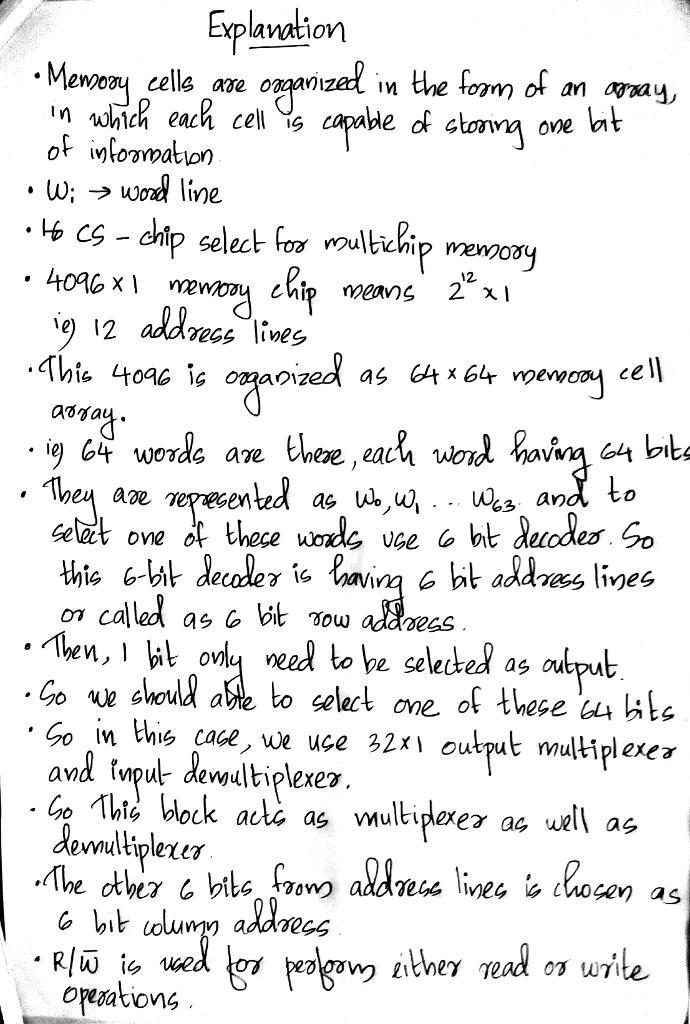 Explanation
• Memory cells are organized in the form of an array,
in which each cell is capable of storing one bit
of information
• Wi → word line
• CS – chip select for multichip memory
• 4096 x 1 memory chip means 2¹² x 1
ie) 12 address lines
• This 4096 is organized as 64 x 64 memory cell
array.
• ie) 64 words are there, each word having 64 bits
• They are represented as W₀, W₁ ... W₆₃ and to
select one of these words use 6 bit decoder. So
this 6-bit decoder is having 6 bit address lines
or called as 6 bit row address.
• Then, 1 bit only need to be selected as output.
• So we should able to select one of these 64 bits
• So in this case, we use 32x1 output multiplexer
and input demultiplexer.
• So This block acts as multiplexer as well as
demultiplexer.
• The other 6 bits from address lines is chosen as
6 bit column address
• R/W̅ is used for perform either read or write
operations.